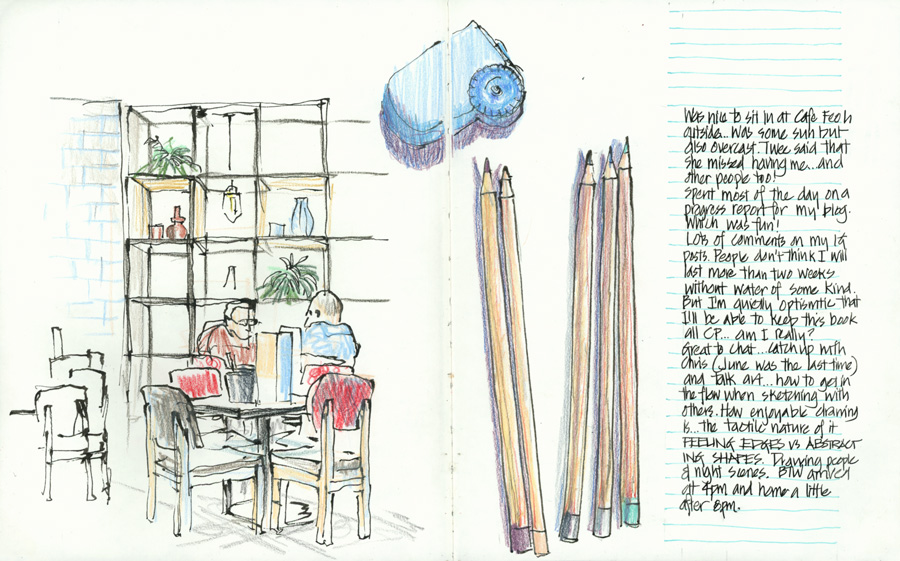 Was nice to sit in at Cafe Feoh
outside... Was some sun but
also overcast. Twee said that
she missed having me... and
other people too!
Spent most of the day on a
progress report for my blog.
Which was fun!
Lots of comments on my IG
posts. People don't think I will
last more than two weeks
without water of some kind.
But I'm quietly optismtic that
I'll be able to keep this book
all CP... am I really?
Great to chat... catch up with
Chris (June was the last time)
and talk art... how to get in
the flow when sketching with
others. How enjoyable drawing
is... the tactile nature of it
FEELING EDGES VS ABSTRACT
ING SHAPES. Drawing people
& night scenes. BTW arrived
at 4pm and home a little
after 8pm.